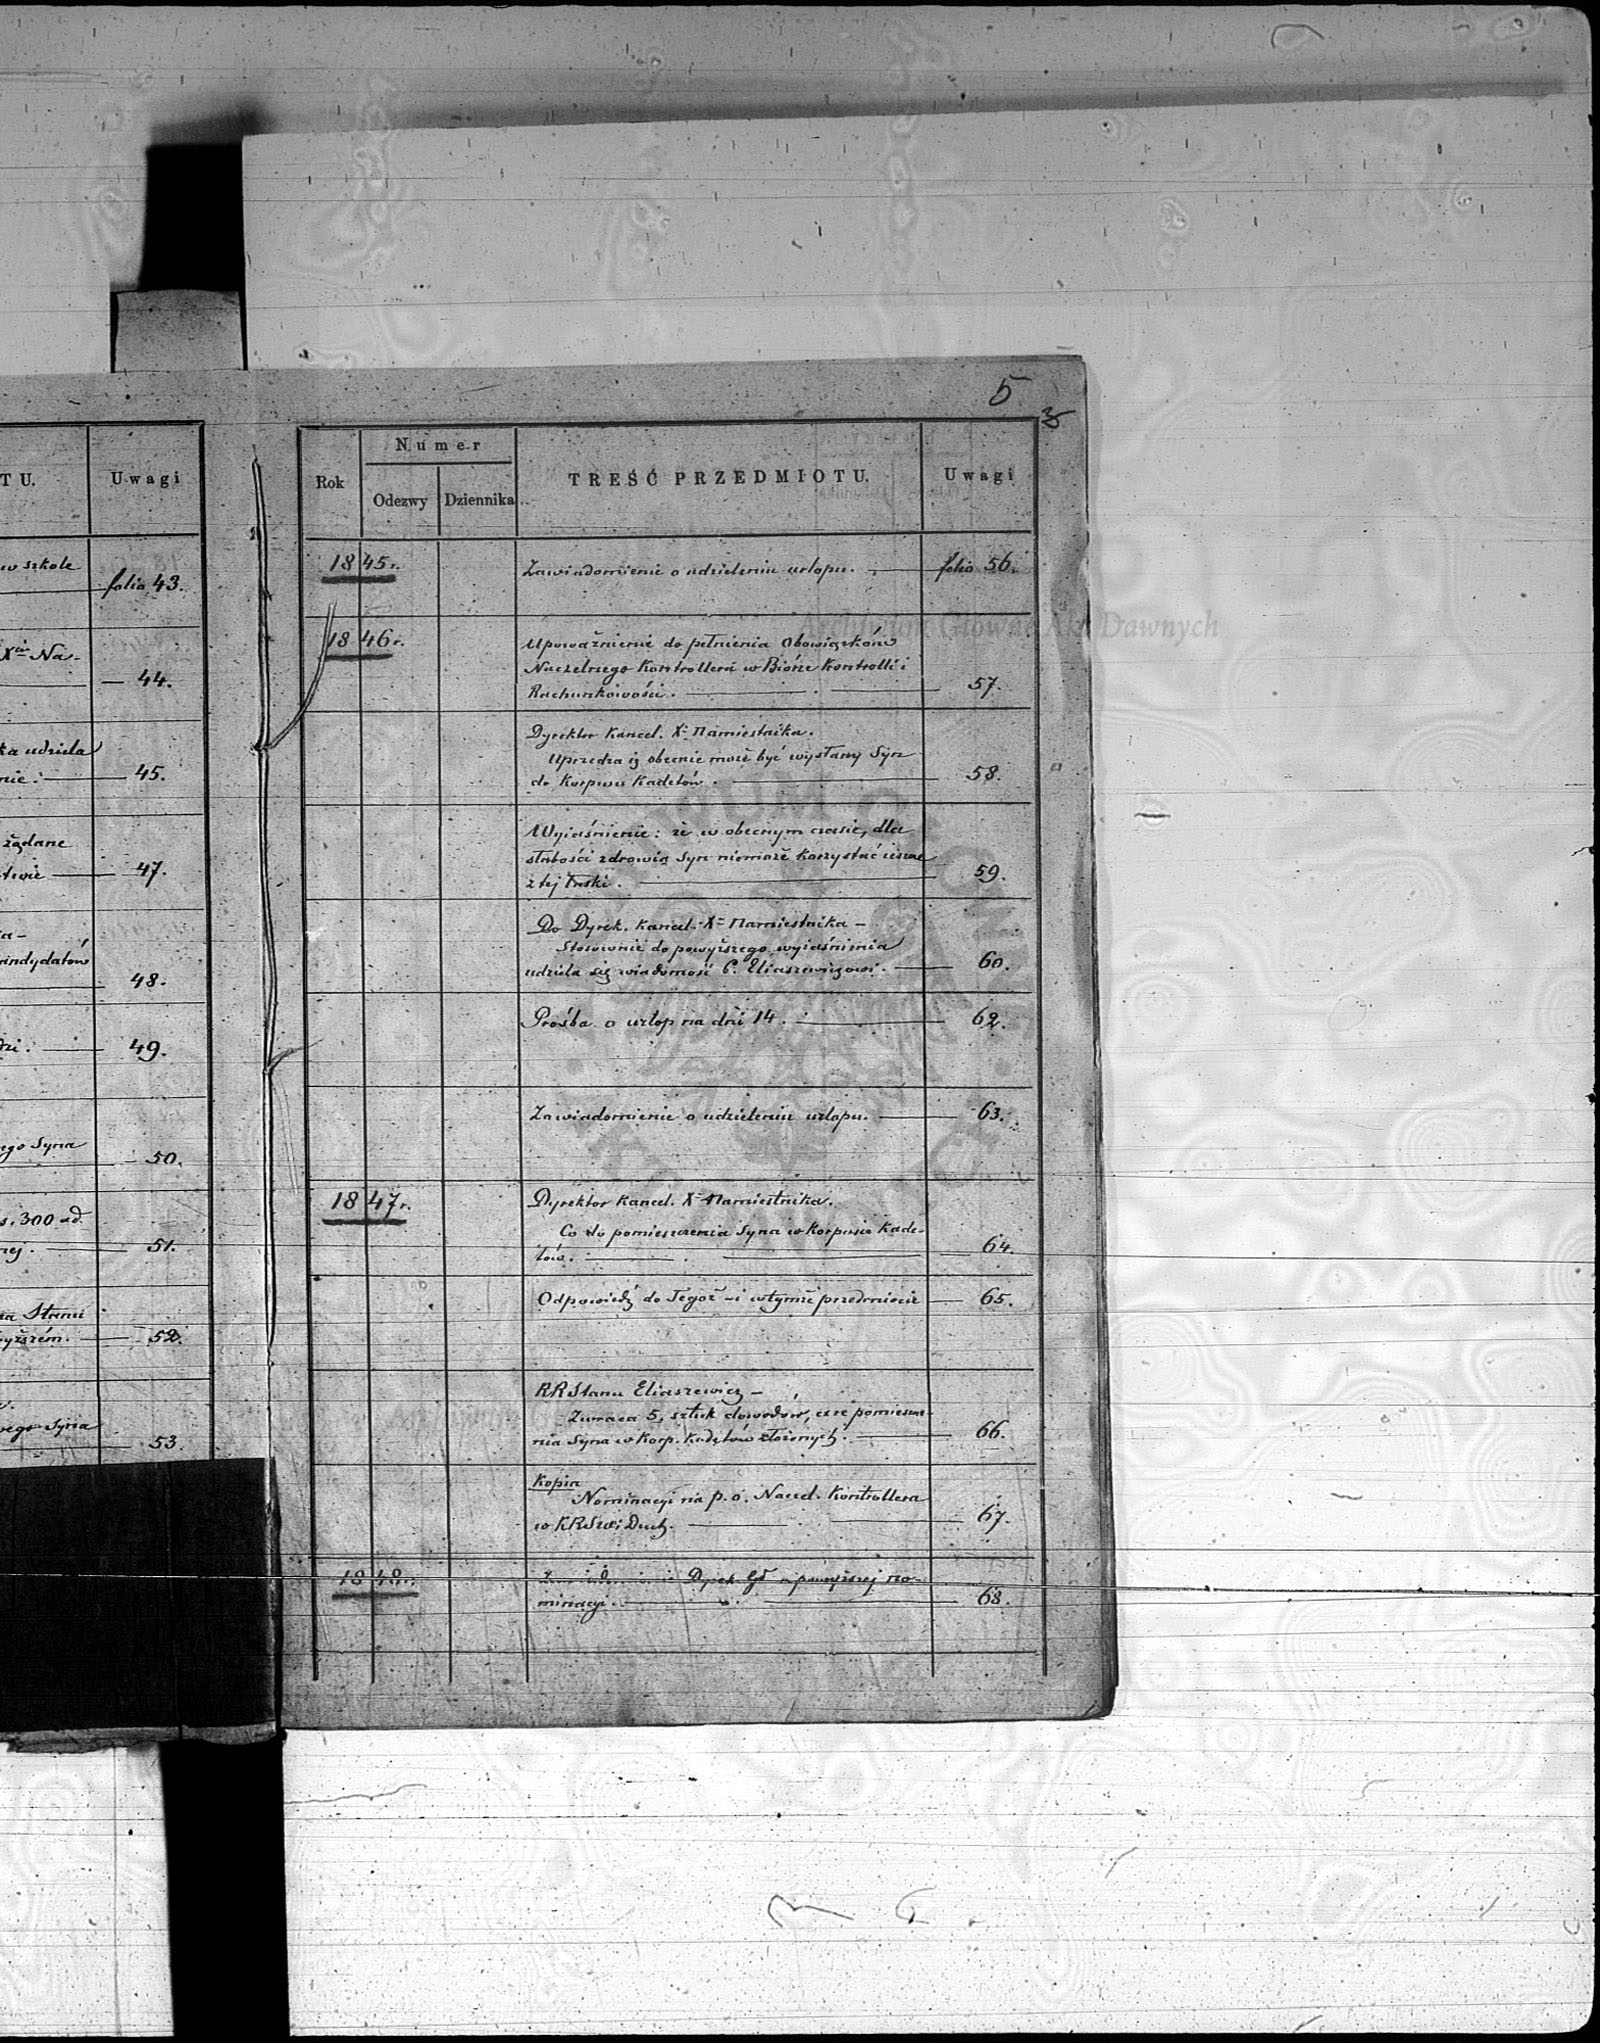 TU. Uwagi
w szkole
folio 43.
Xcia Na-
44.
ka udziela
nie: 45.
żądane
47.
andydatów
48.
49.
ego Syna
50.
s. 300 ad.
51.
na Stani
yższém. 52.
wego Syna
53.
5
3
Rok Numer Odezwy Dziennika TREŚĆ PRZEDMIOTU. Uwagi
1845r. Zawiadomienie o udzieleniu urlopu. folio 56.
1846r. Upoważnienie do pełnienia Obowiązków
Naczelnego Kontrollera w Biórze Kontrolli i
Rachunkowości. 57.
Dyrektor Kancel. Xa Namiestnika.
Uprzedza iż obecnie może być wysłany Syn
do Korpusu Kadetów. 58.
Wyiaśnienie: że w obecnym czasie, dla
słabości zdrowia Syn niemoże korzystać ieszcze
z tej łaski. 59.
Do Dyrek. Kancel. Xa Namiestnika –
Stosownie do powyższego wyiaśnienia
udziela się wiadomość P. Eliaszewiczowi. 60.
Prośba o urlop na dni 14. 62.
Zawiadomienie o udzieleniu urlopu. 63.
1847r. Dyrektor Kancel. Xa Namiestnika.
Co do pomieszczenia Syna w Korpusie Kade-
tów. 64.
Odpowiedź do Tegoż – i w tymże przedmiocie 65.
RR Stanu Eliaszewicz –
Zwraca 5, sztuk dowodów, co re pomieszcze-
nia Syna w Korp. Kadetów złożonych. 66.
Kopia
Nominacyi na p. o. Naczel. Kontrollera
w KRSW i Duch. 67.
1848r. Zawiadomienie Dyrek. Gł. o powyższej no-
minacyi. 68.
Archiwum Główne Akt Dawnych